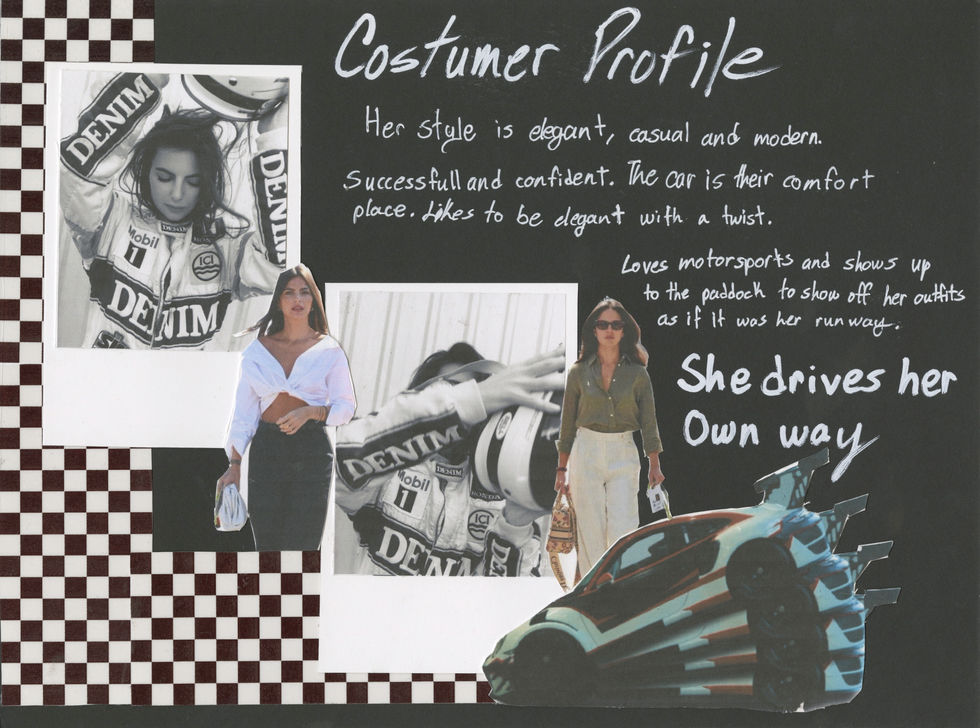 Costumer Profile
Her style is elegant, casual and modern.
Successfull and confident. The car is their comfort
place. Likes to be elegant with a twist.
Loves motorsports and shows up
to the paddock to show off her outfits
as if it was her runway.
She drives her
Own way
DENIM
DENIM
DENIM
HONDA
Mobil
1
ICI
DENIM
DENIM
DENIM
HONDA
Mobil
1
ICI
DENIM